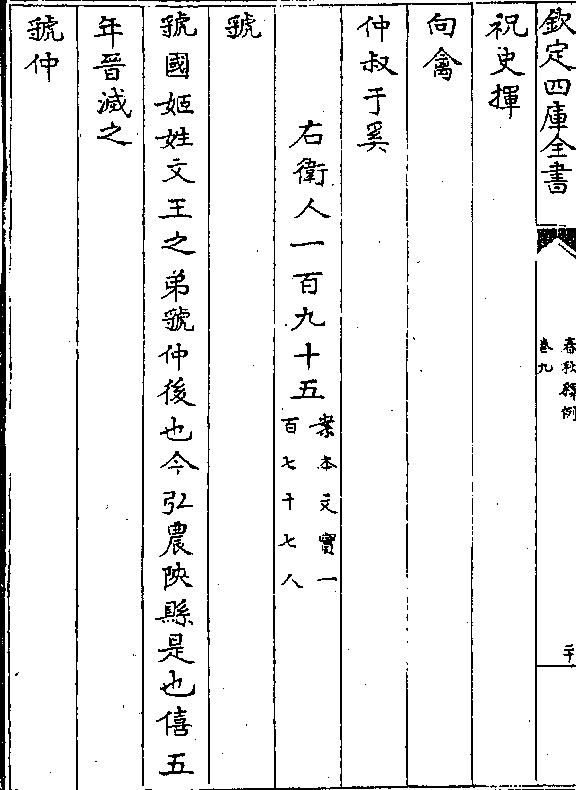 欽定四庫全書
春秋釋例
卷九
二十
祝史揮
向禽
仲叔于奚
右衞人一百九十五
案本文實一
百七十七人
虢
虢國姬姓文王之弟虢仲後也今弘農陜縣是也僖五
年晉滅之
虢仲